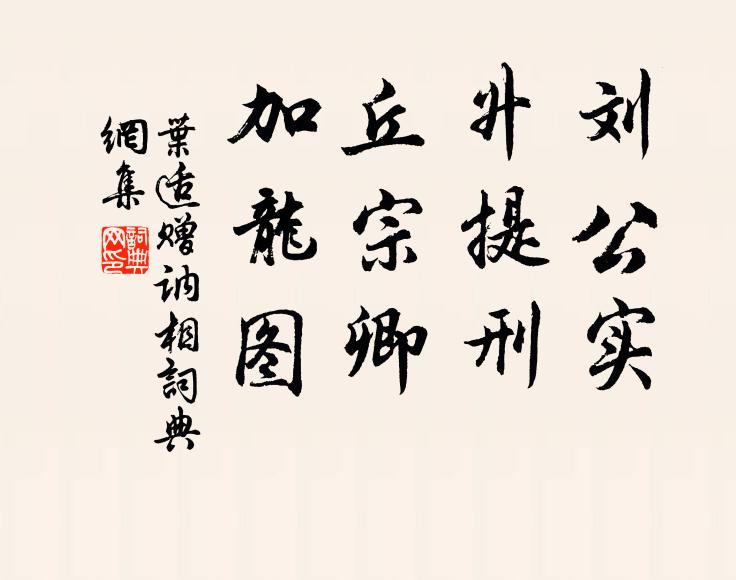 刘公实
升提刑
丘宗卿
加龍图
葉适赠讷相詞典
網集
詞典
网印